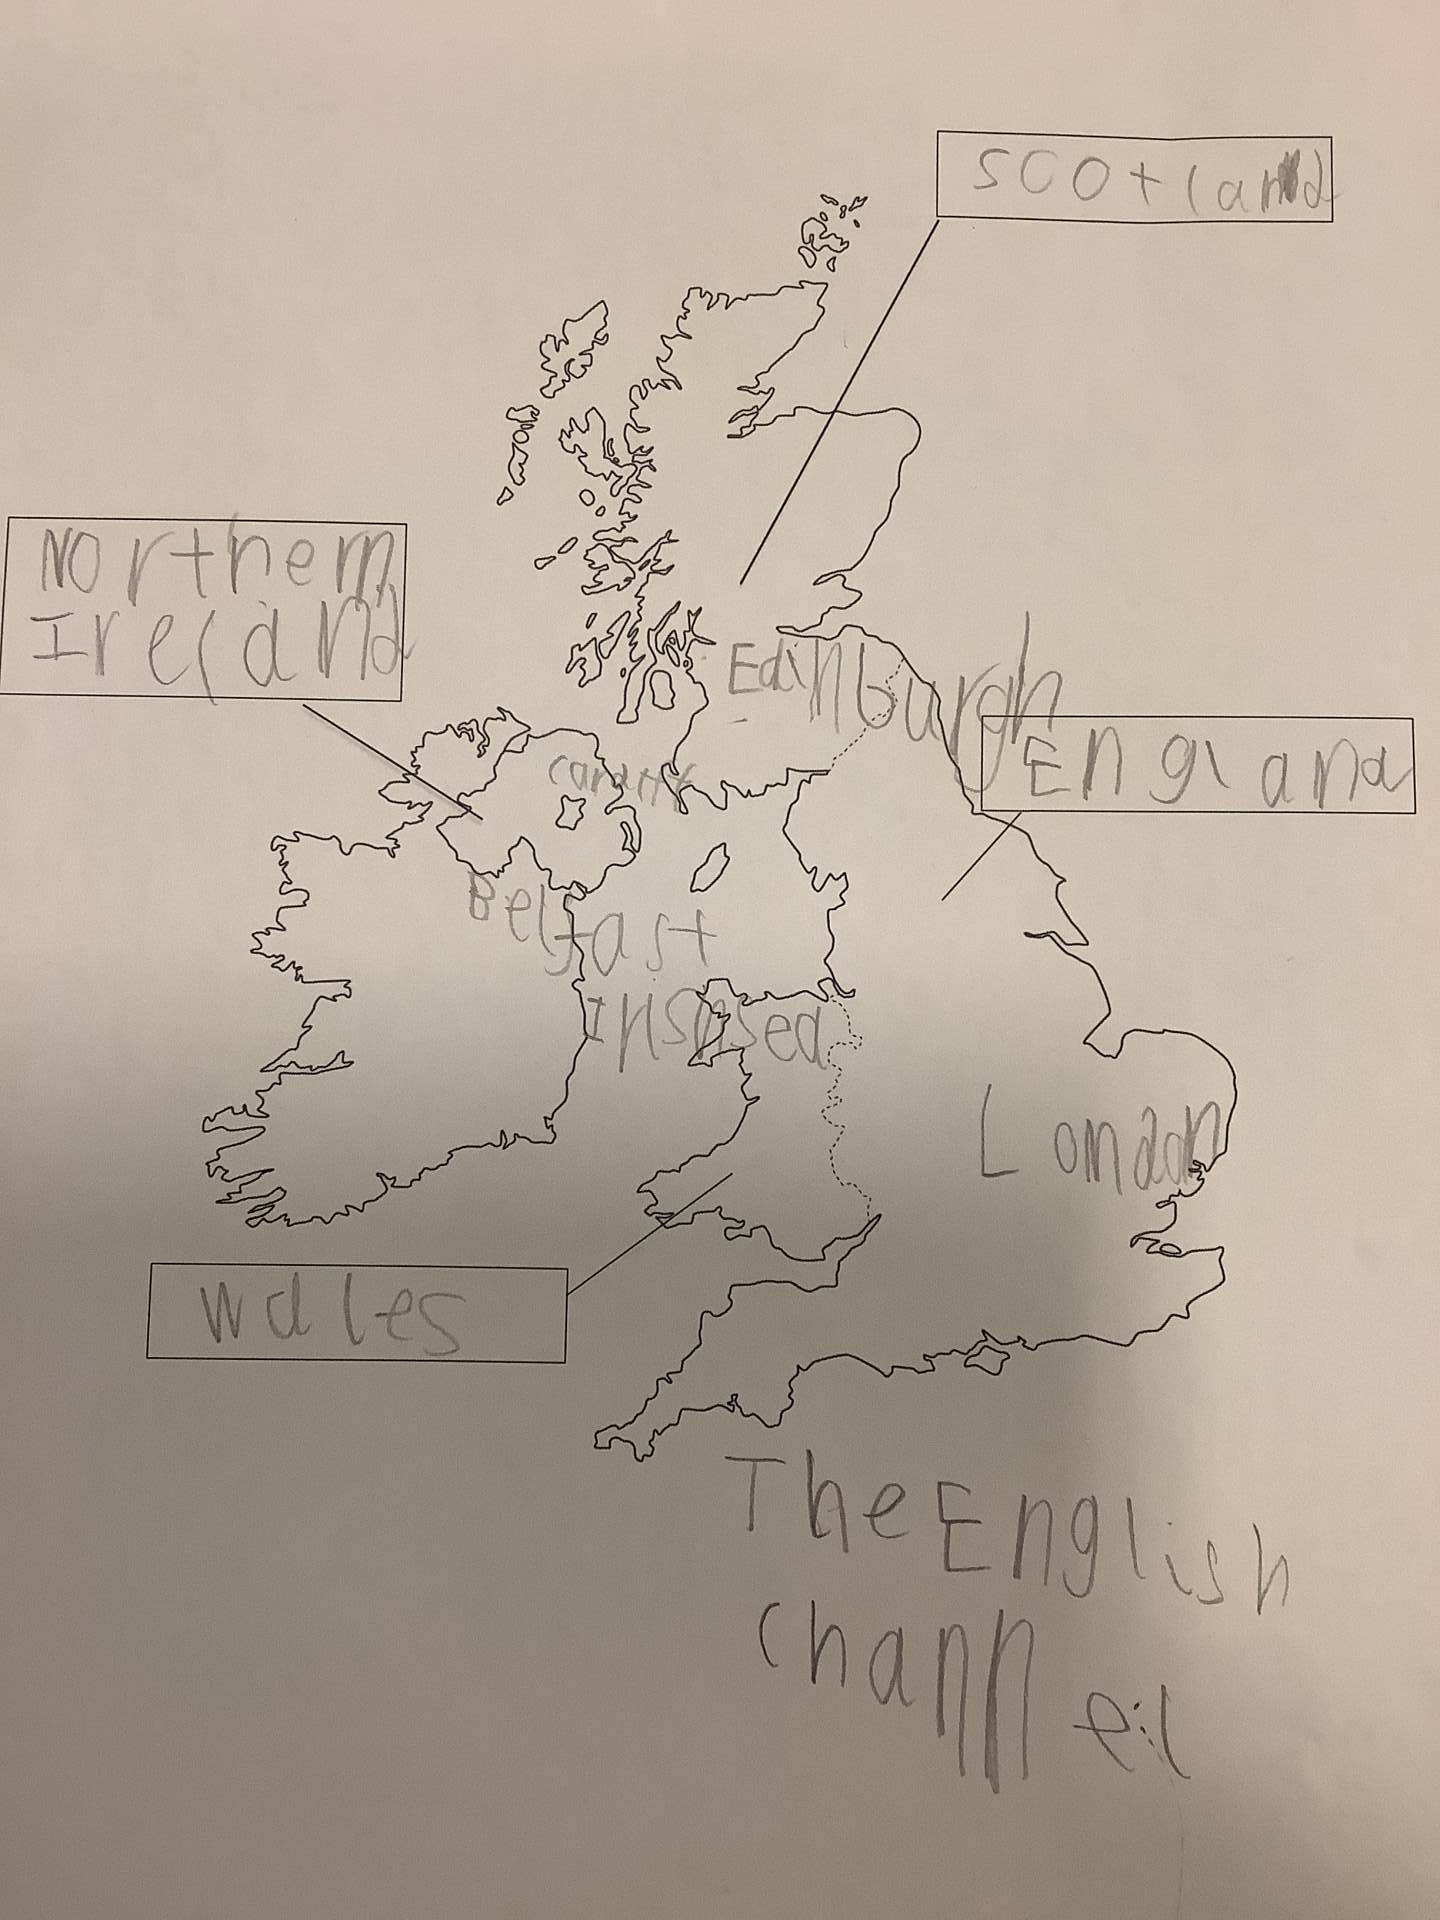 scotland
Northern
Ireland
Edinburgh
England
Cardiff
Belfast
London
Wales
The English
channel